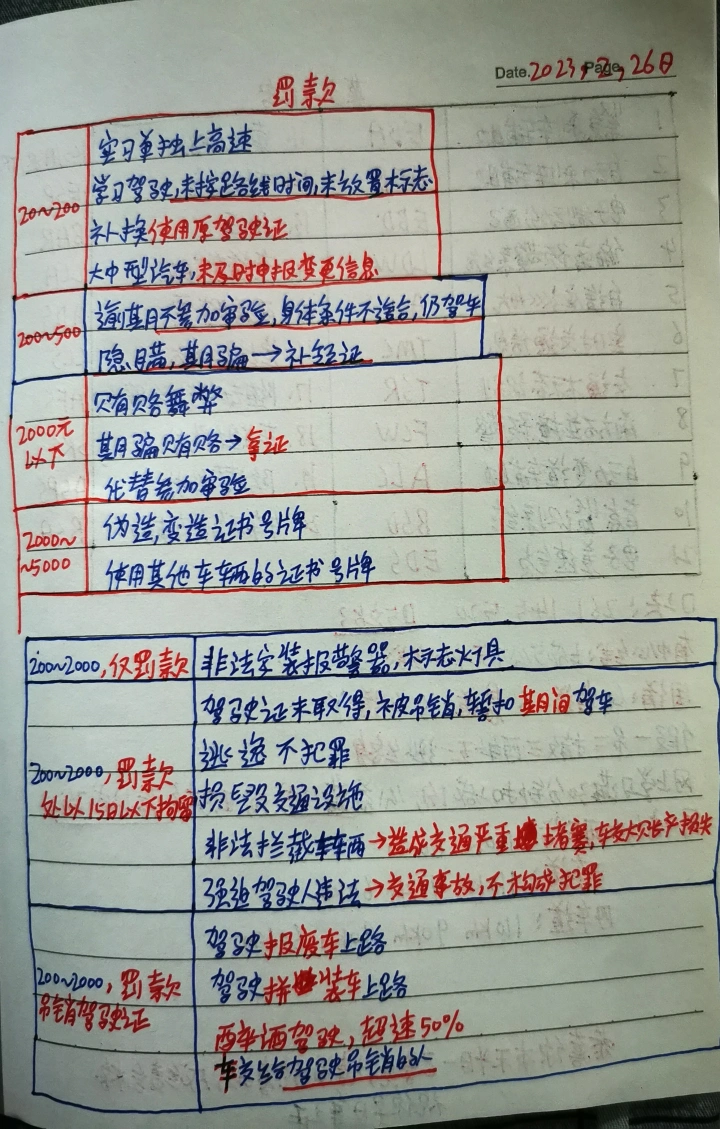 Date. 2023, 2, 26日
Page.
罚款
20~200
实习单独上高速
学习驾驶,未按路线时间,未放置标志
补换使用原驾驶证
大中型汽车,未及时申报变更信息
200~500
逾期不参加审验,身体条件不适合,仍驾车
隐瞒,欺骗→补领证
2000元以下
贿赂舞弊
欺骗贿赂→拿证
代替参加审验
2000~~5000
伪造,变造证书号牌
使用其他车辆的证书号牌
200~2000,仅罚款
非法安装报警器,标志灯具
200~2000,罚款
处以15日以下拘留
驾驶证未取得,被吊销,暂扣期间驾车
逃逸不犯罪
损毁交通设施
非法拦截车辆→造成交通严重堵塞,较大财产损失
强迫驾驶人违法→交通事故,不构成犯罪
200~2000,罚款
吊销驾驶证
驾驶报废车上路
驾驶拼装车上路
醉酒驾驶,超速50%
车交给驾驶吊销的人